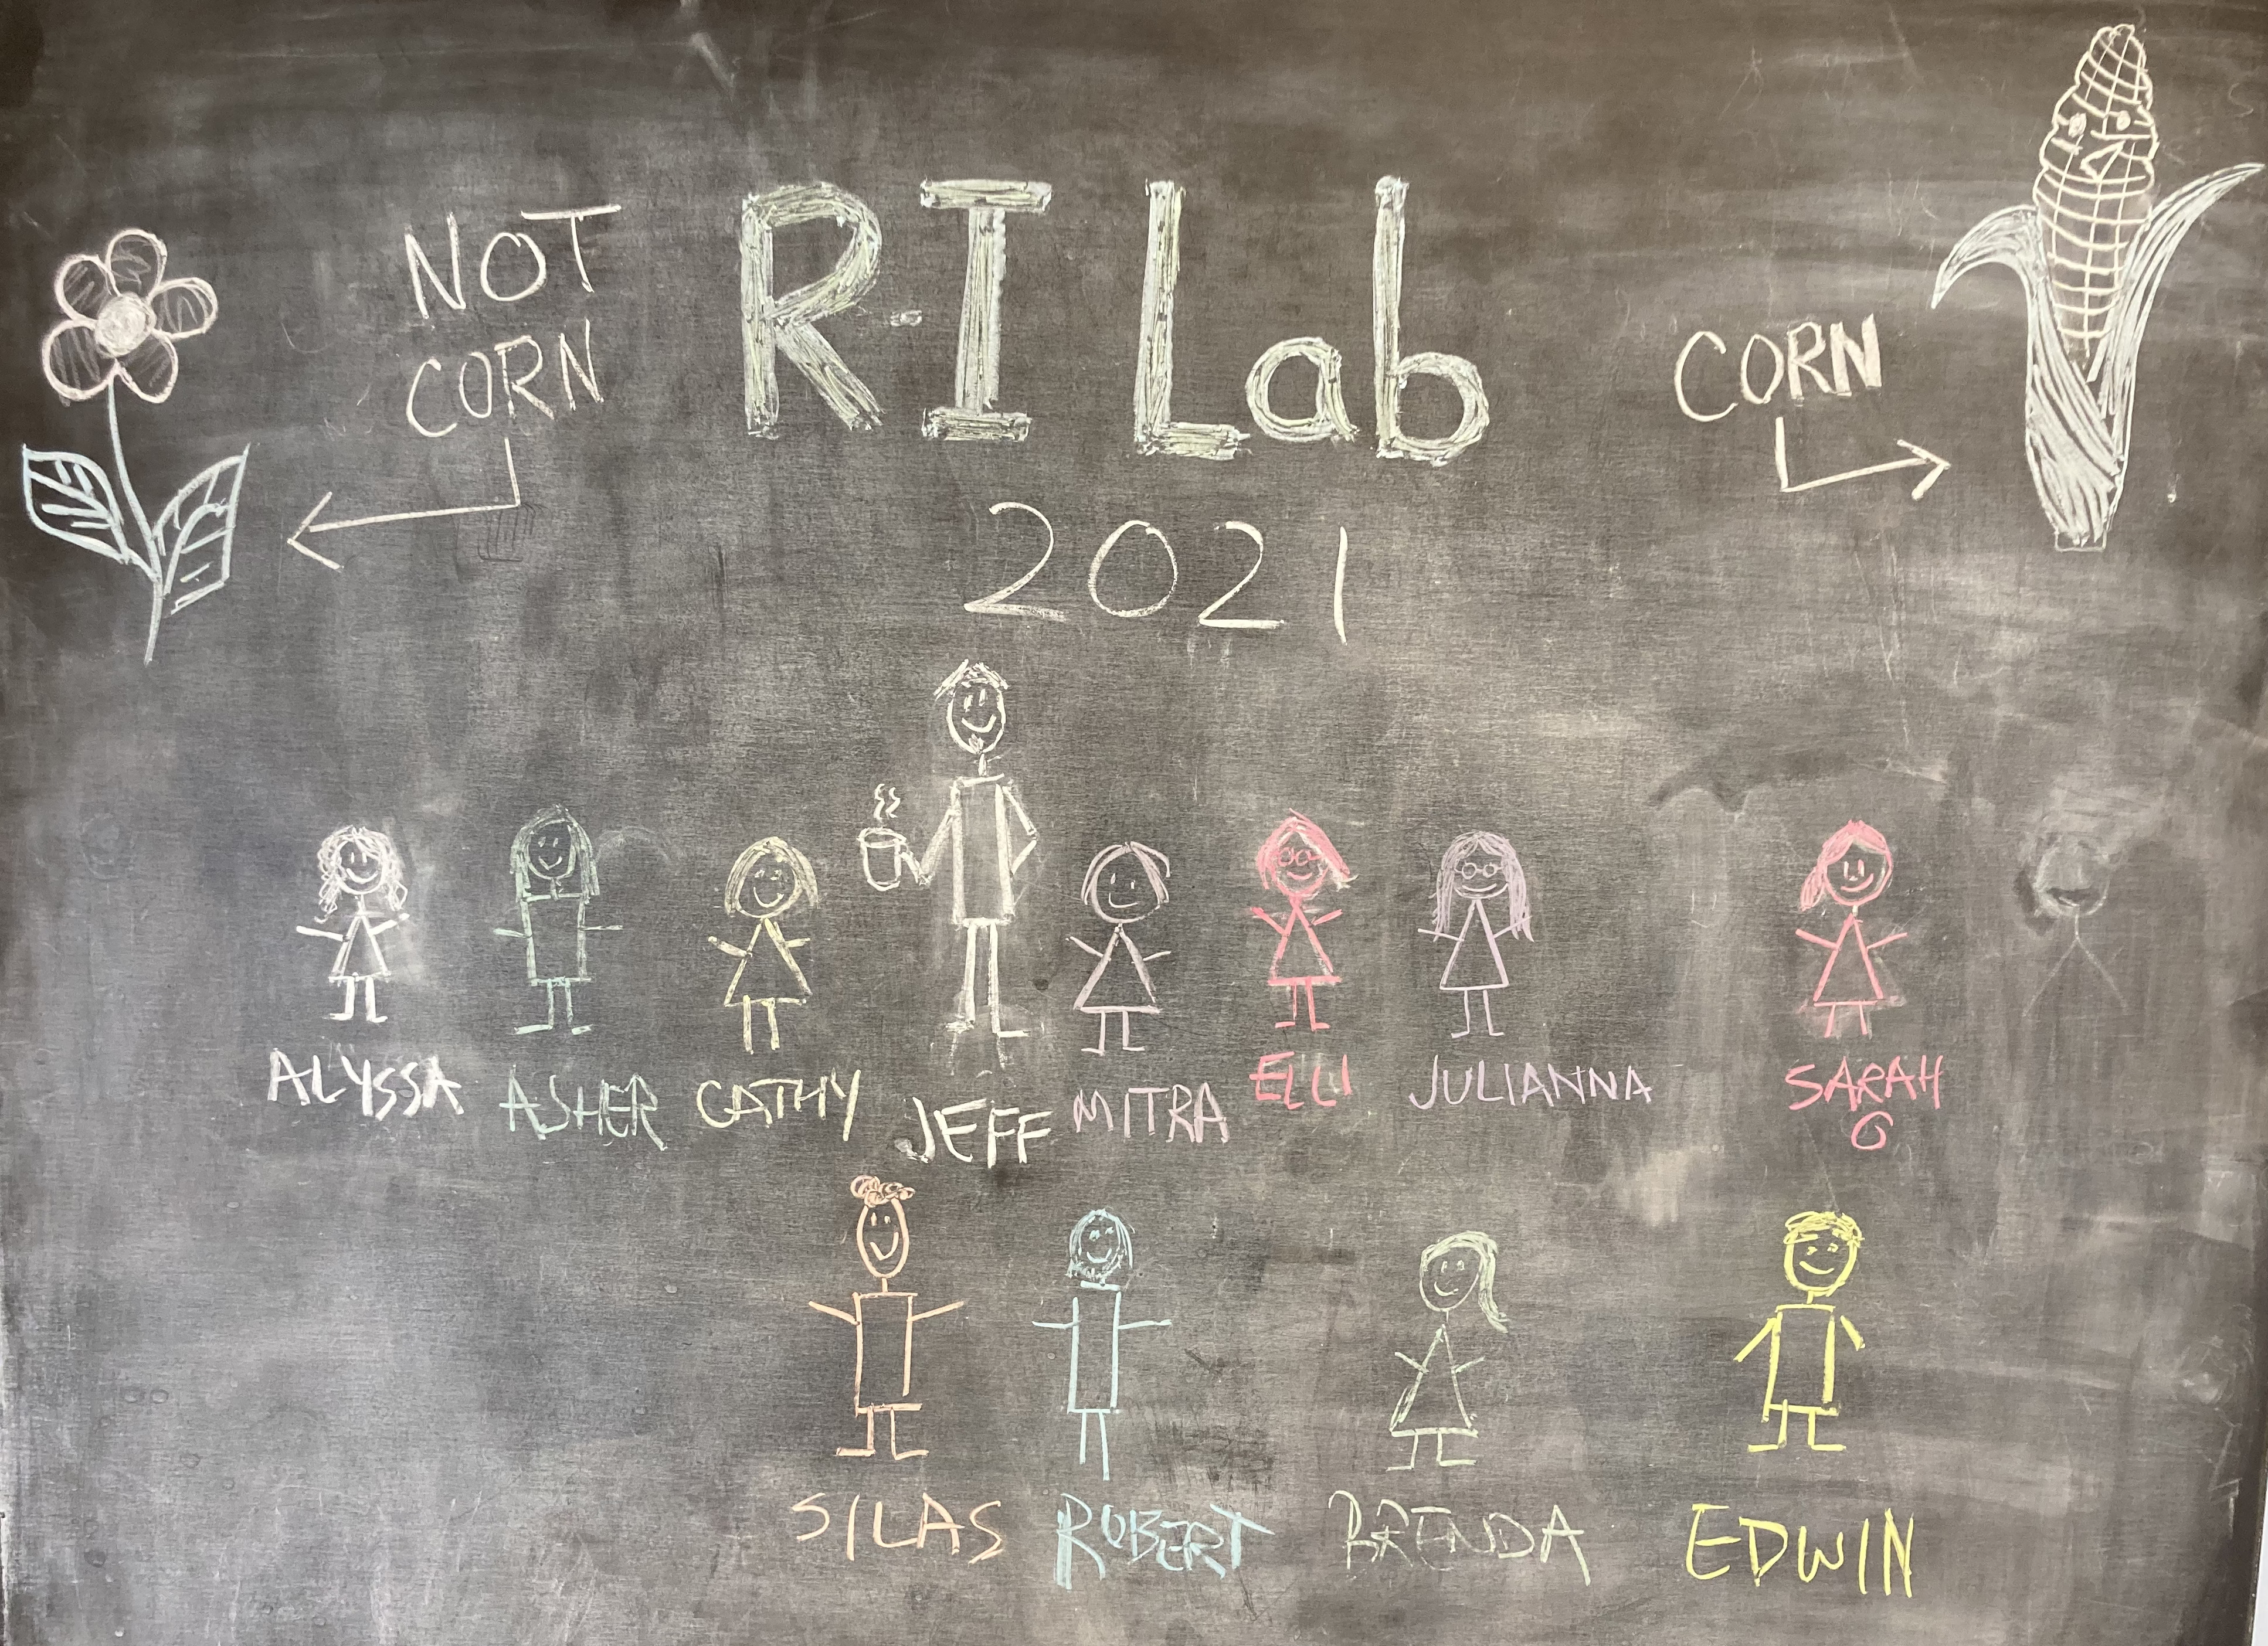 NOT
CORN
R-I Lab
2021
CORN
ALYSSA
ASHER
CATHY
JEFF
MITRA
ELLI
JULIANNA
SARAH
G
SILAS
ROBERT
BRENDA
EDWIN